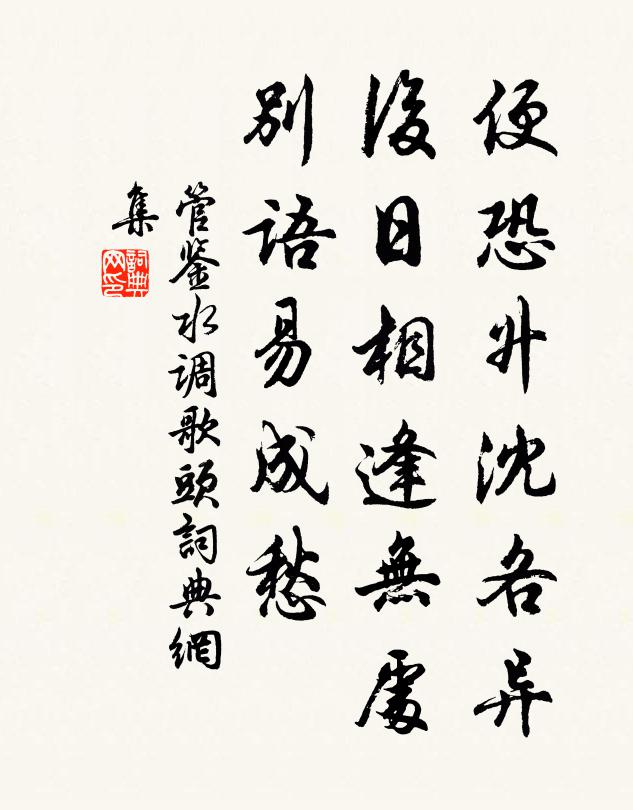 便恐升沈各异
後日相逢無處
別語易成愁
管鉴水调歌頭詞典網
集
詞典网印